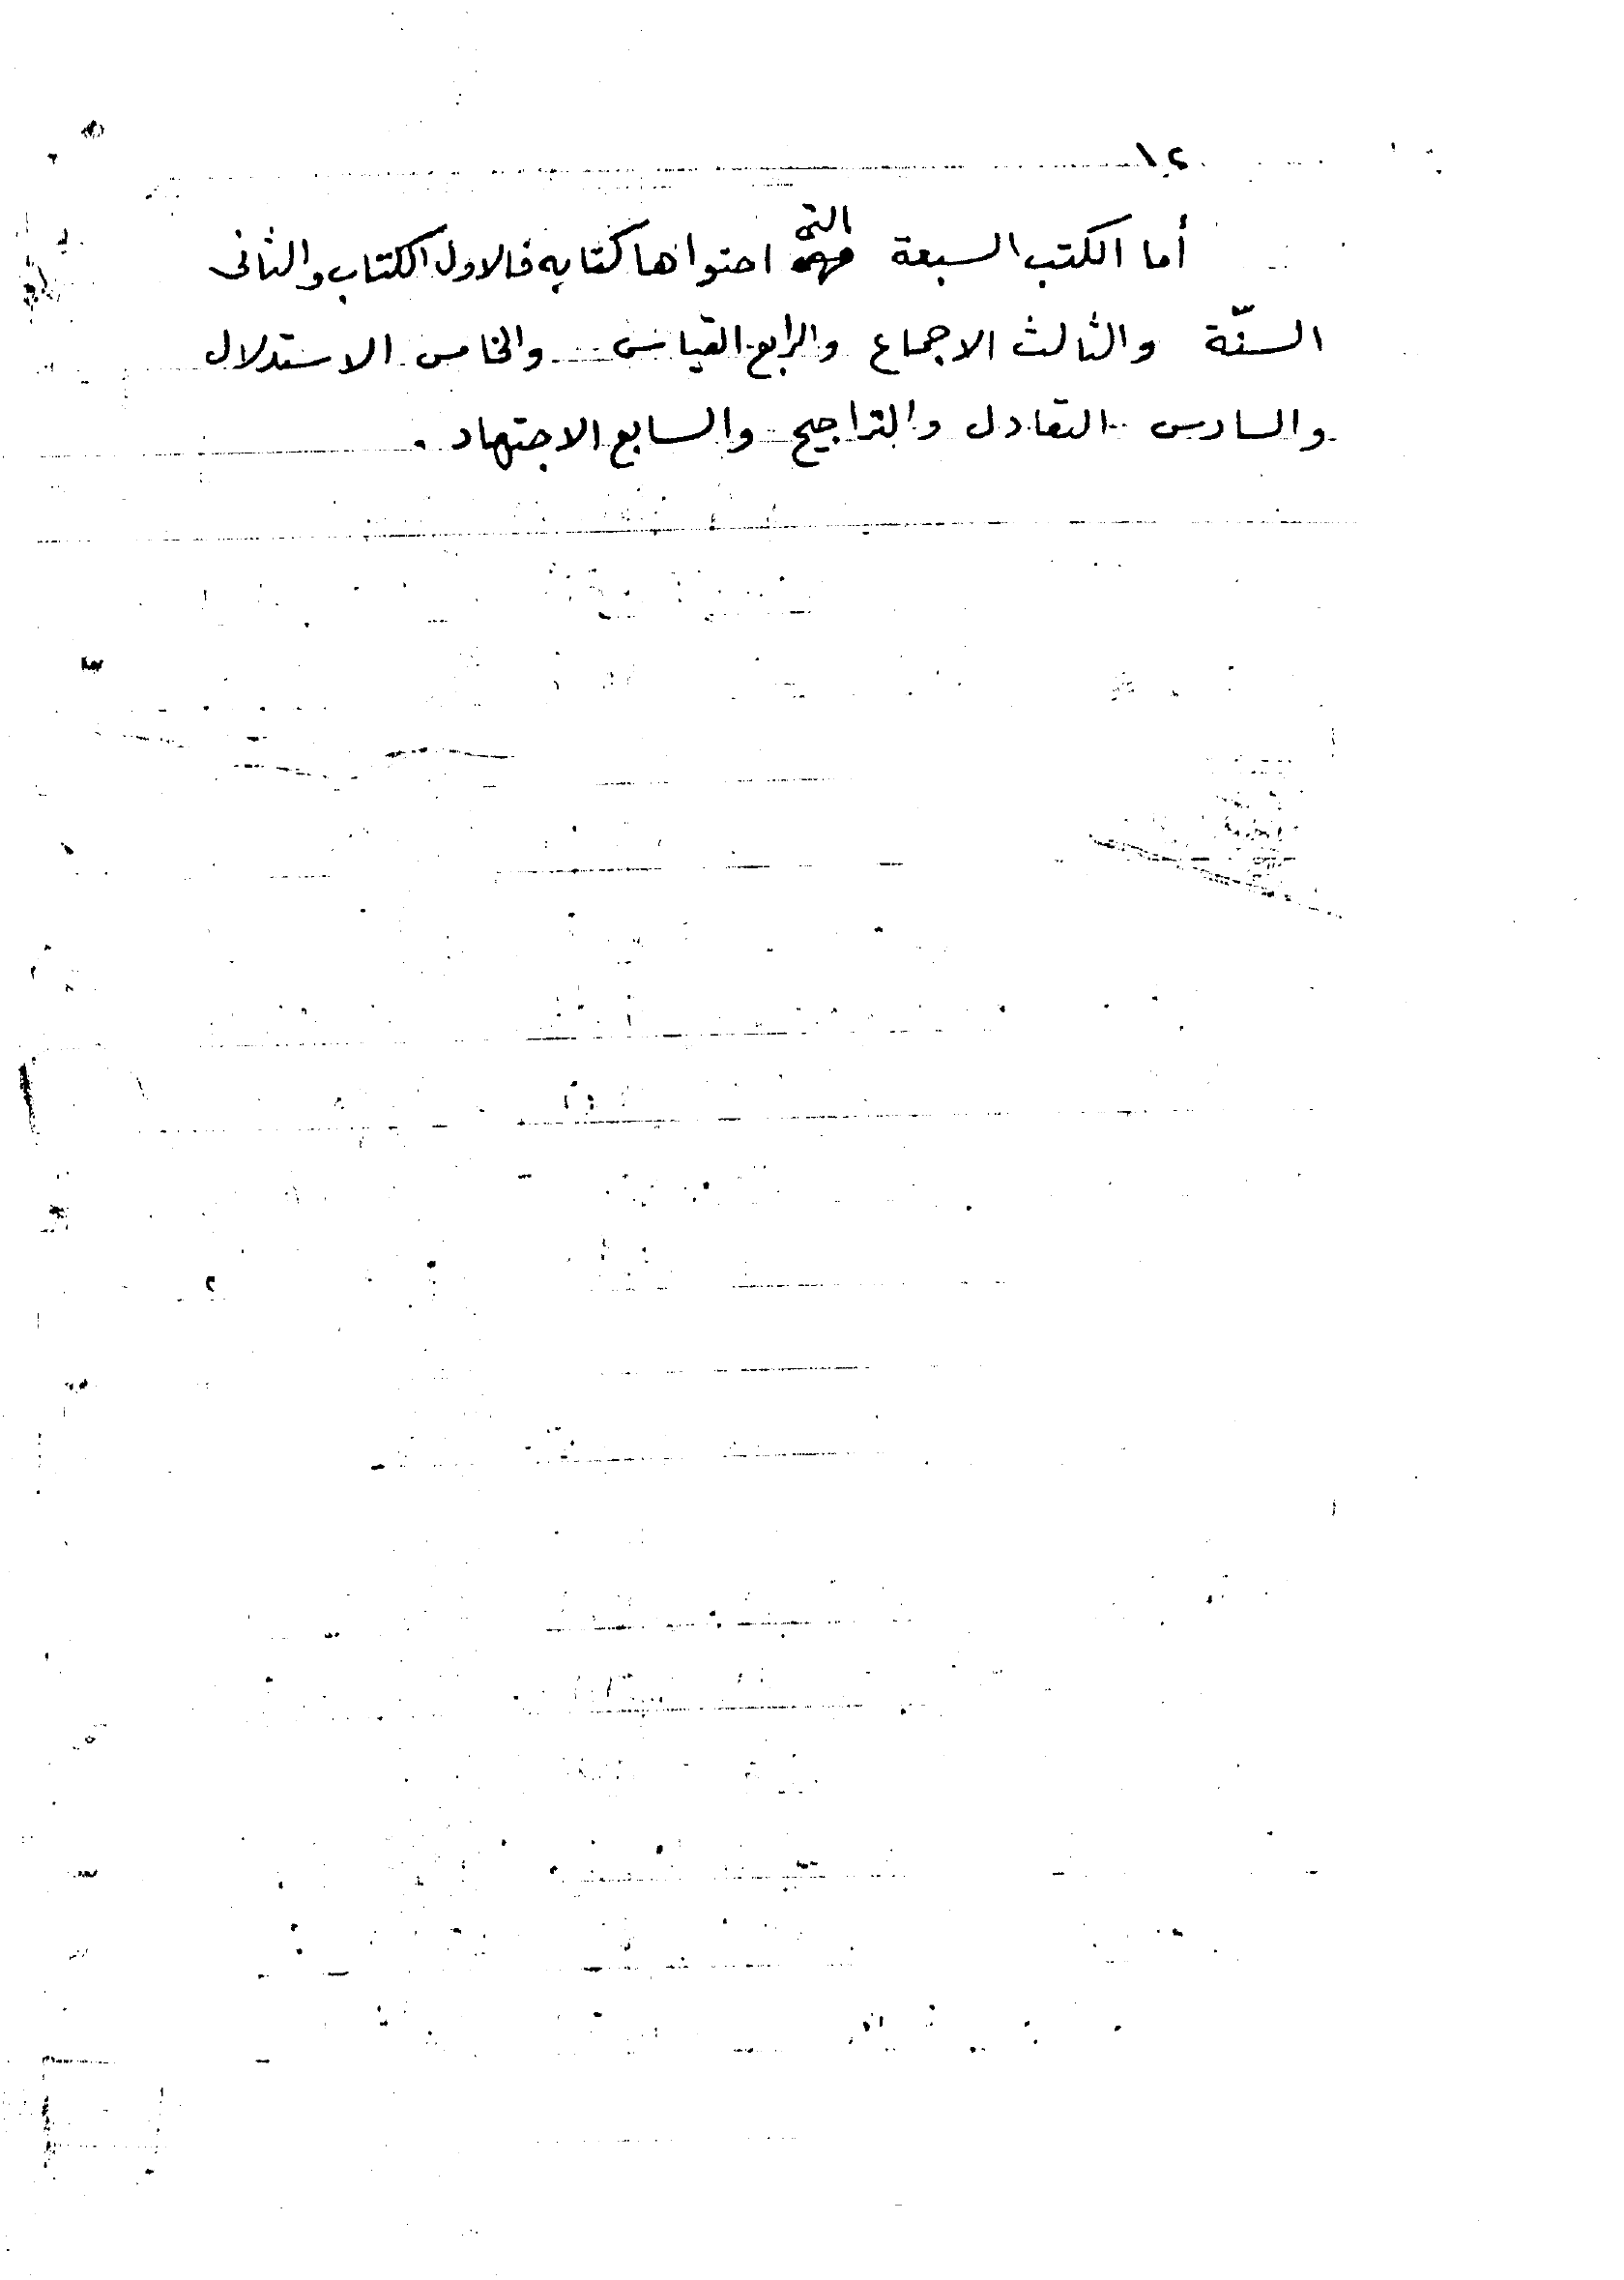 ١٤
أما الكتب السبعة التى احتواها كتابه فالاول الكتاب والثانى
السنّة والثالث الاجماع والرابع القياس والخامس الاستدلال
والسادس التعادل والتراجيح والسابع الاجتهاد .